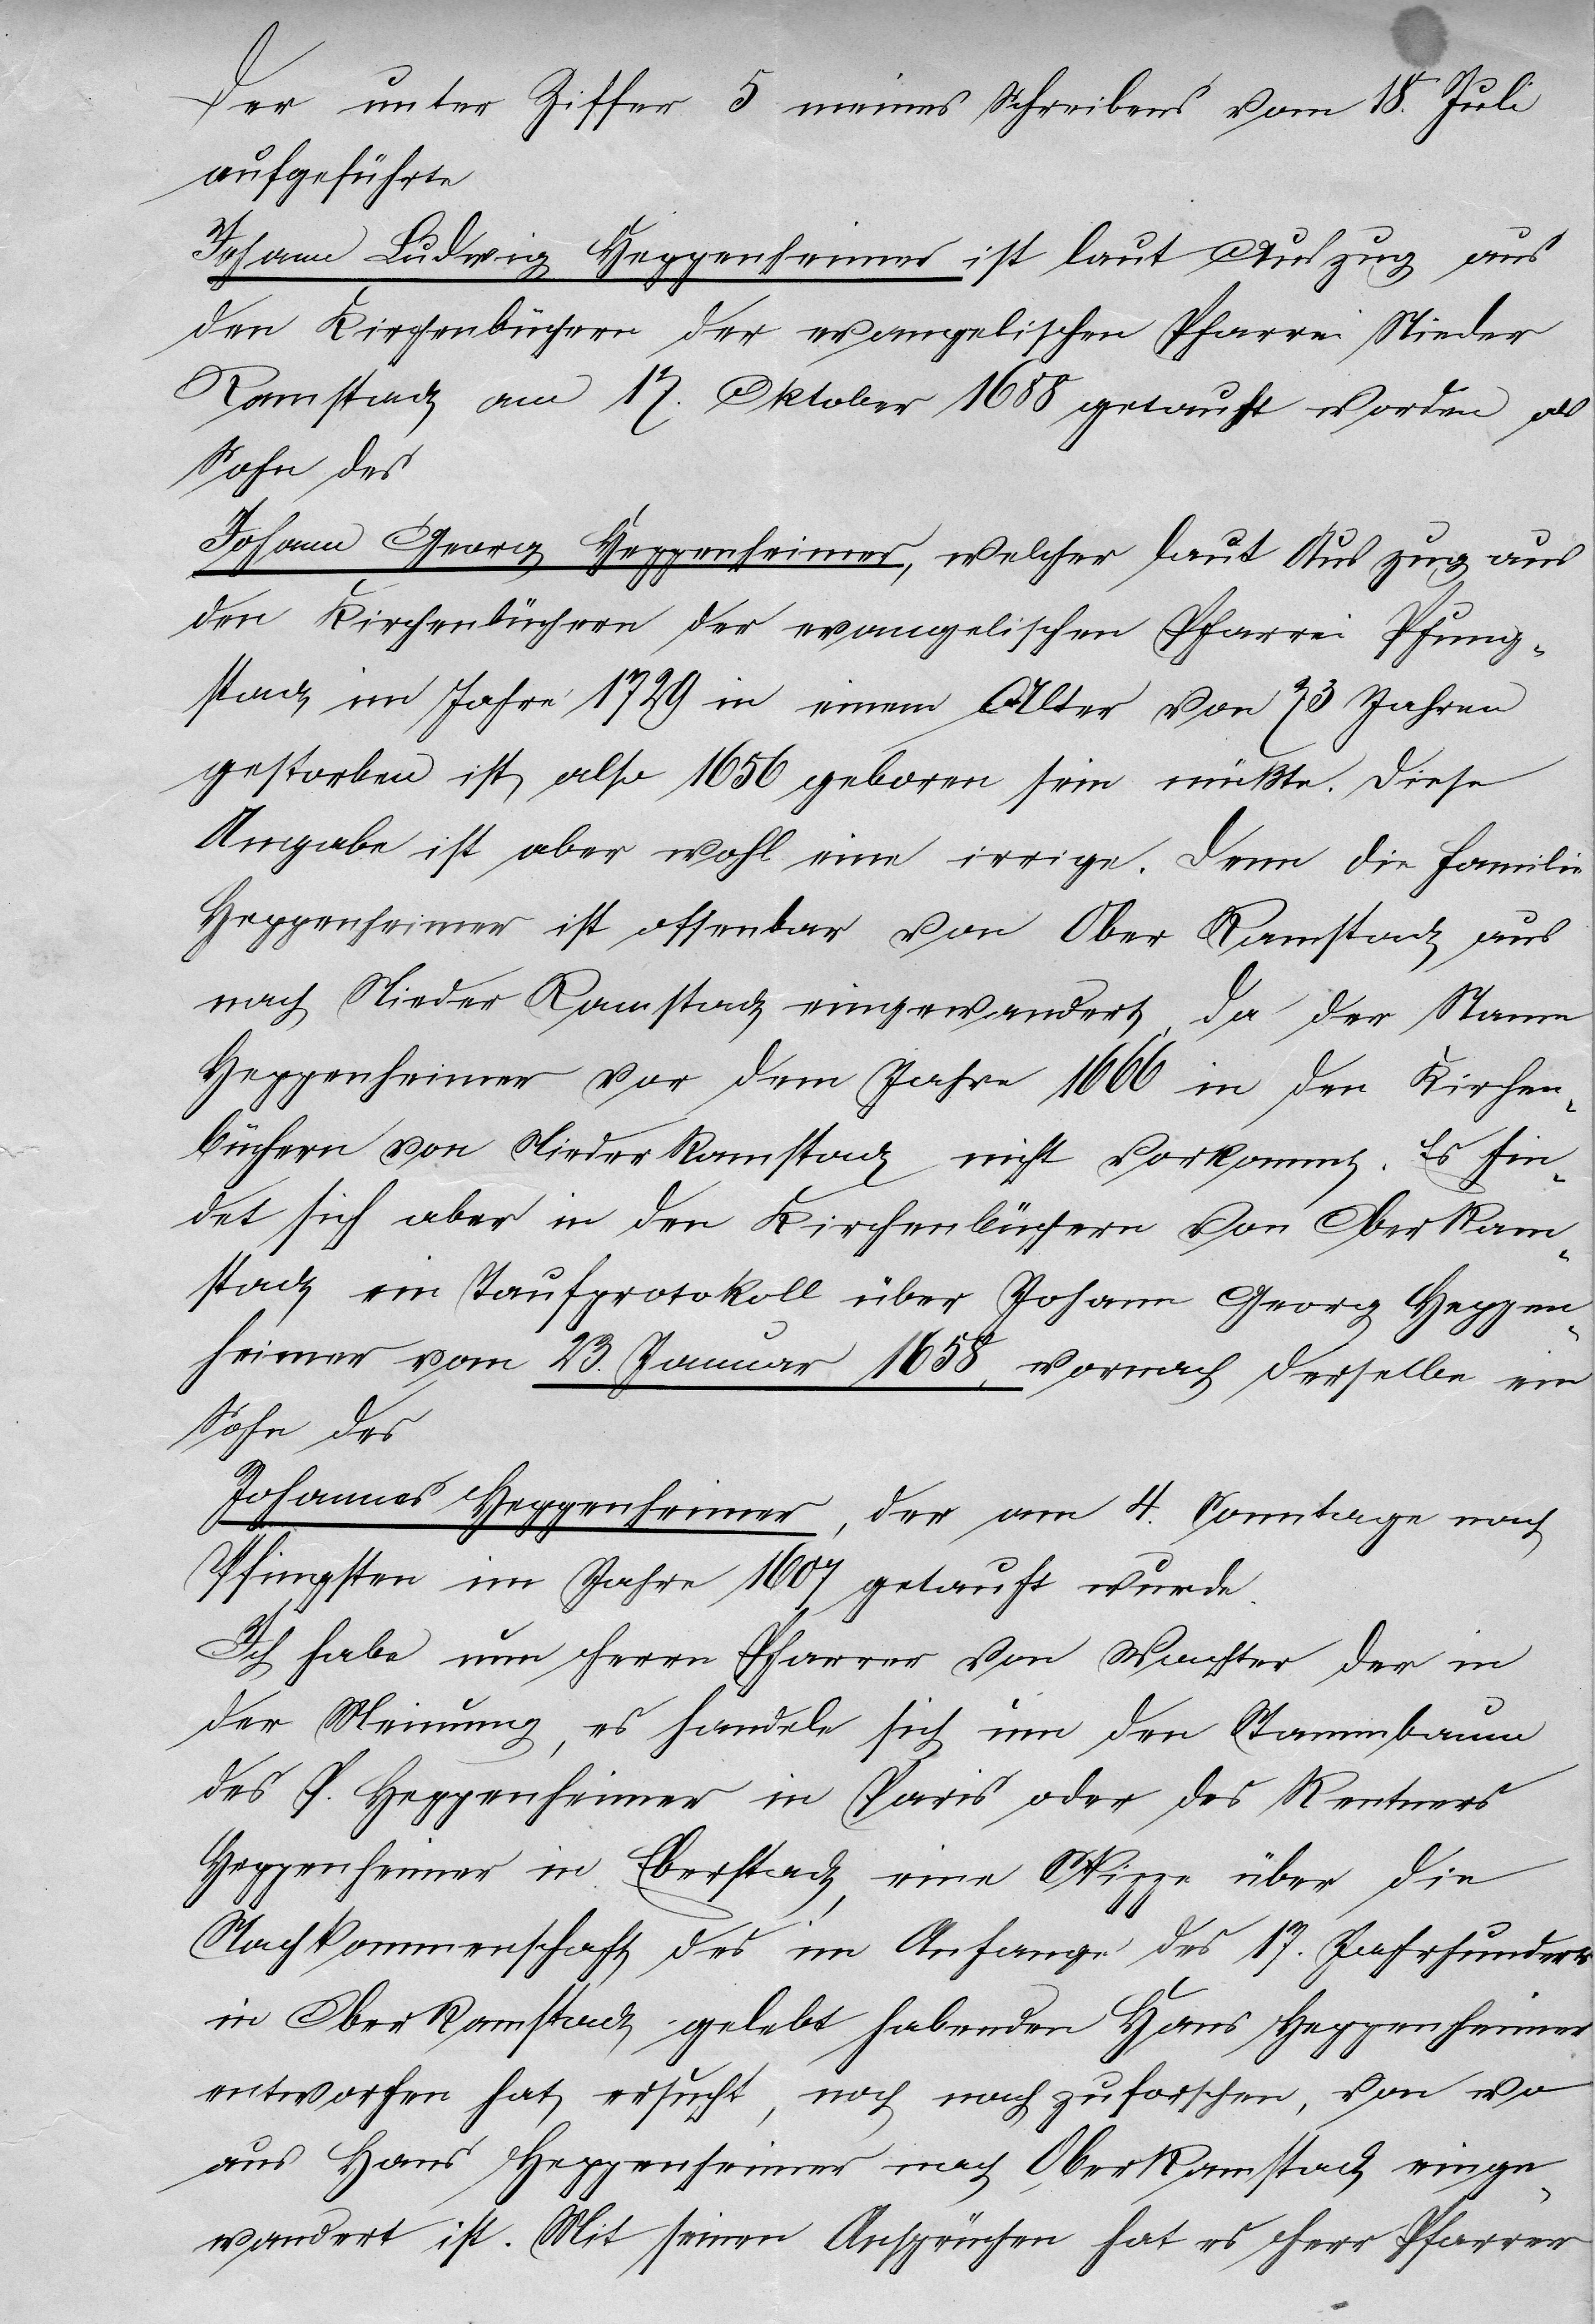 Der unter Ziffer 5 meines Schreibens vom 18. Juli
aufgeführte
Johann Ludwig Heppenheimer ist laut Auszug aus
den Kirchenbüchern der evangelischen Pfarrei Nieder
Ramstadt am 17. Oktober 1688 getauft worden als
Sohn des
Johann Georg Heppenheimer, welcher laut Auszug aus
den Kirchenbüchern der evangelischen Pfarrei Pfung-
stadt im Jahre 1729 in einem Alter von 73 Jahren
gestorben ist, also 1656 geboren sein müßte. Diese
Angabe ist aber wohl eine irrige. Denn die Familie
Heppenheimer ist offenbar von Ober Ramstadt aus
nach Nieder Ramstadt eingewandert, da der Name
Heppenheimer vor dem Jahre 1666 in den Kirchen-
büchern von Nieder Ramstadt nicht vorkommt. Es fin-
det sich aber in den Kirchenbüchern von Ober Ram-
stadt ein Taufprotokoll über Johann Georg Heppen-
heimer vom 23. Januar 1658, wornach derselbe ein
Sohn des
Johannes Heppenheimer, der am 4. Sonntage nach
Pfingsten im Jahre 1607 getauft wurde.
Ich habe nun Herrn Pfarrer von Wachter der in
der Meinung, es handele sich um den Stammbaum
des P. Heppenheimer in Paris oder des Rentners
Heppenheimer in Eberstadt, eine Skizze über die
Nachkommenschaft des im Anfange des 17. Jahrhunderts
in Ober Ramstadt gelebt habenden Hans Heppenheimer
entworfen hat, ersucht, noch nachzuforschen, von wo
aus Hans Heppenheimer nach Ober Ramstadt einge-
wandert ist. Mit seinen Ansprüchen hat es Herr Pfarrer